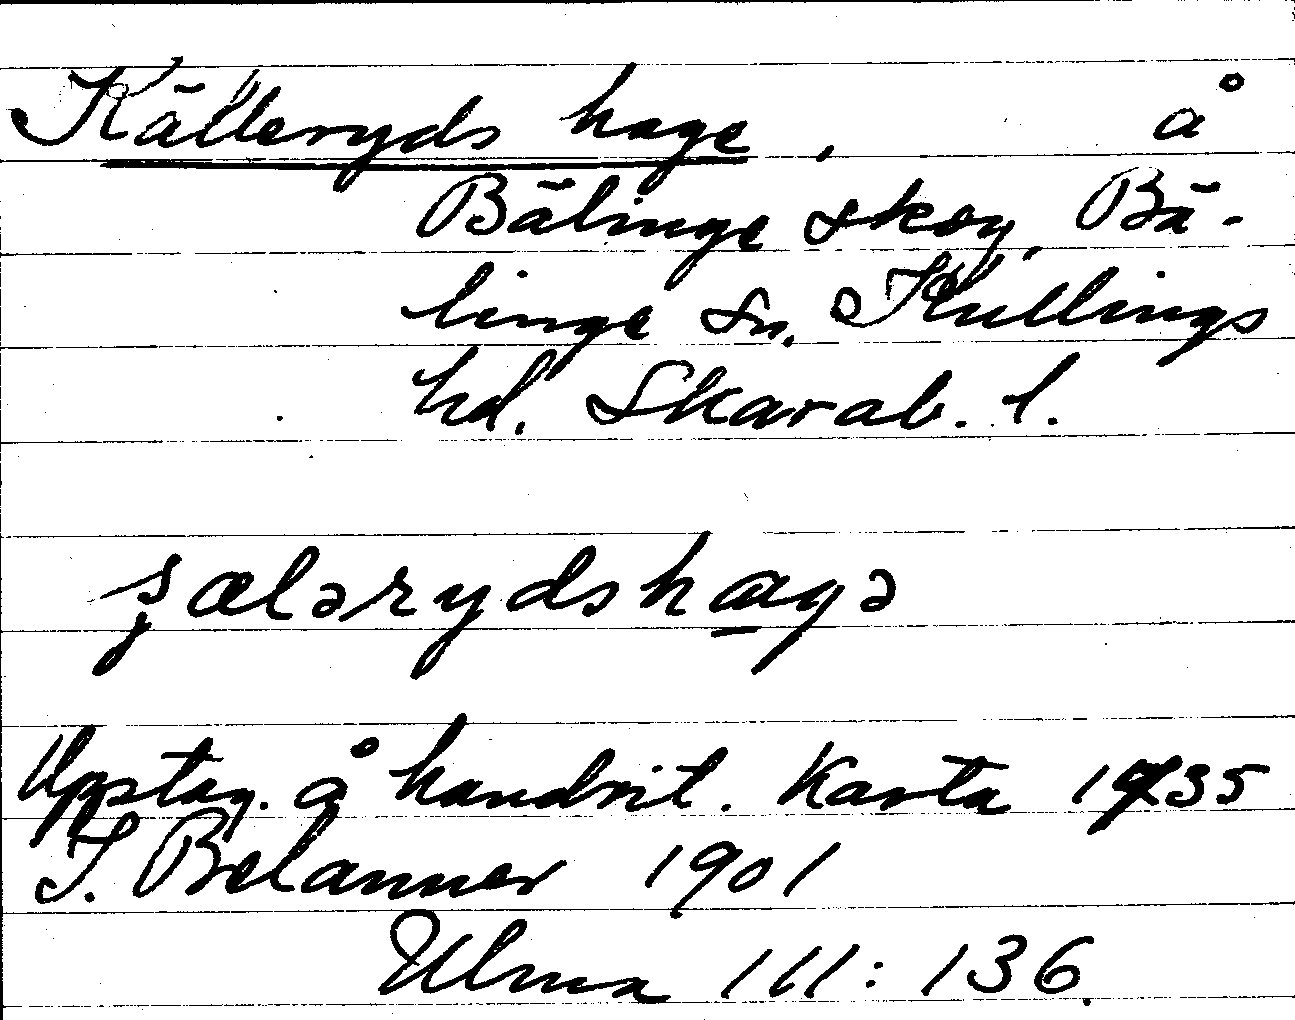 Källeryds hage, å
Bälinge skog, Bä-
linge sn. Kullings
hd. Skarab. l.
ʂælərydshagə
Upptag. å handrit. Karta 1735
J. Belanner 1901
Ulma 111:136.